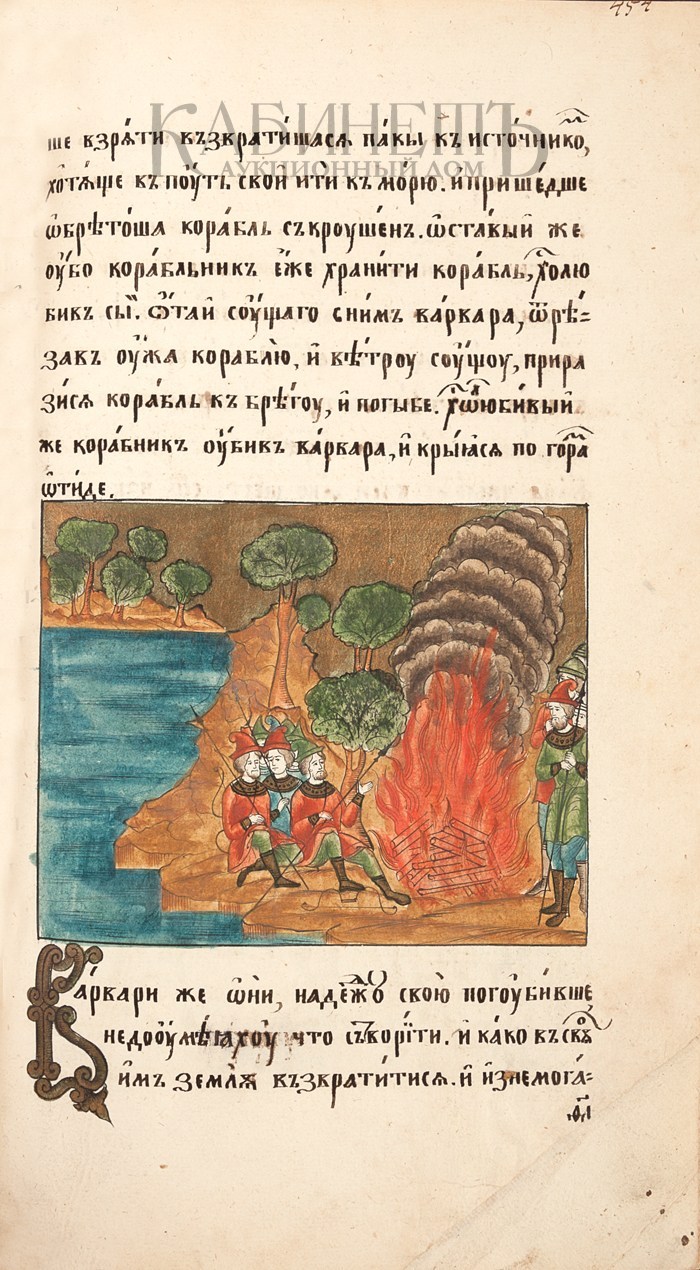 454
КАБИНЕТЪ
АУКЦИОННЫЙ ДОМ
ше взрѧ́ти възврати́шасѧ па́кы къ исто́чникꙋ,
хотѧ́ще къ поу́ть свой ити къ мо́рю. и҆ прише́дше
ѡ҆брѣто́ша кора́бль съкроуше́нъ. ѡ҆ста́выи же
оу҆́бо кора́бльникъ є҆́же храни́ти кора́бль, хо҃лю
бикъ сы́и. ѿтай соу́щаго снимъ ва́рвара, ѿрѣ́=
завъ оу҆́жа кораблю̀, и҆ вѣ́троу соу́щоу, прира
зи́сѧ кора́бль къ брѣ́гоу, и҆ погы́бе.
же кора́бникъ оу҆би́въ ва́рвара, и҆ кры́ꙗсѧ по гора́
ѿти́де.
Ва́рвари же ѡ҆ни, наде́жю свою̀ погоуби́вше
недооумѣ́ꙗхоу что сътвори́ти. и҆ ка́ко въ своꙗ́
имъ землѧ̀ възврати́тисѧ. и҆ и҆знемога́=